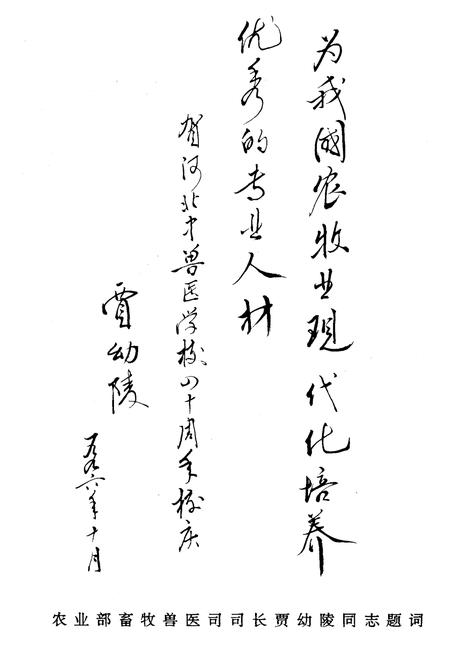 为我國农牧业现代化培养
优秀的专业人材
贺河北中兽医学校四十周年校庆
贾幼陵
一九九六年十月
农业部畜牧兽医司司长贾幼陵同志题词